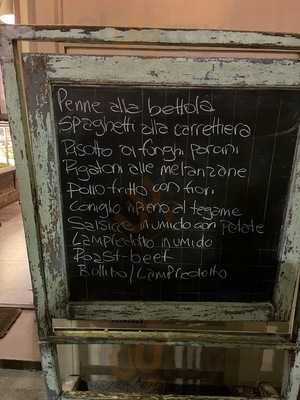 Penne alla bettola
Spaghetti alla carrettiera
Risotto ai funghi porcini
Rigatoni alle melanzane
Pollo fritto con fiori
Coniglio ripieno al tegame
Salsicce in umido con patate
Lampredotto in umido
Roast-beef
Bollito/Lampredotto